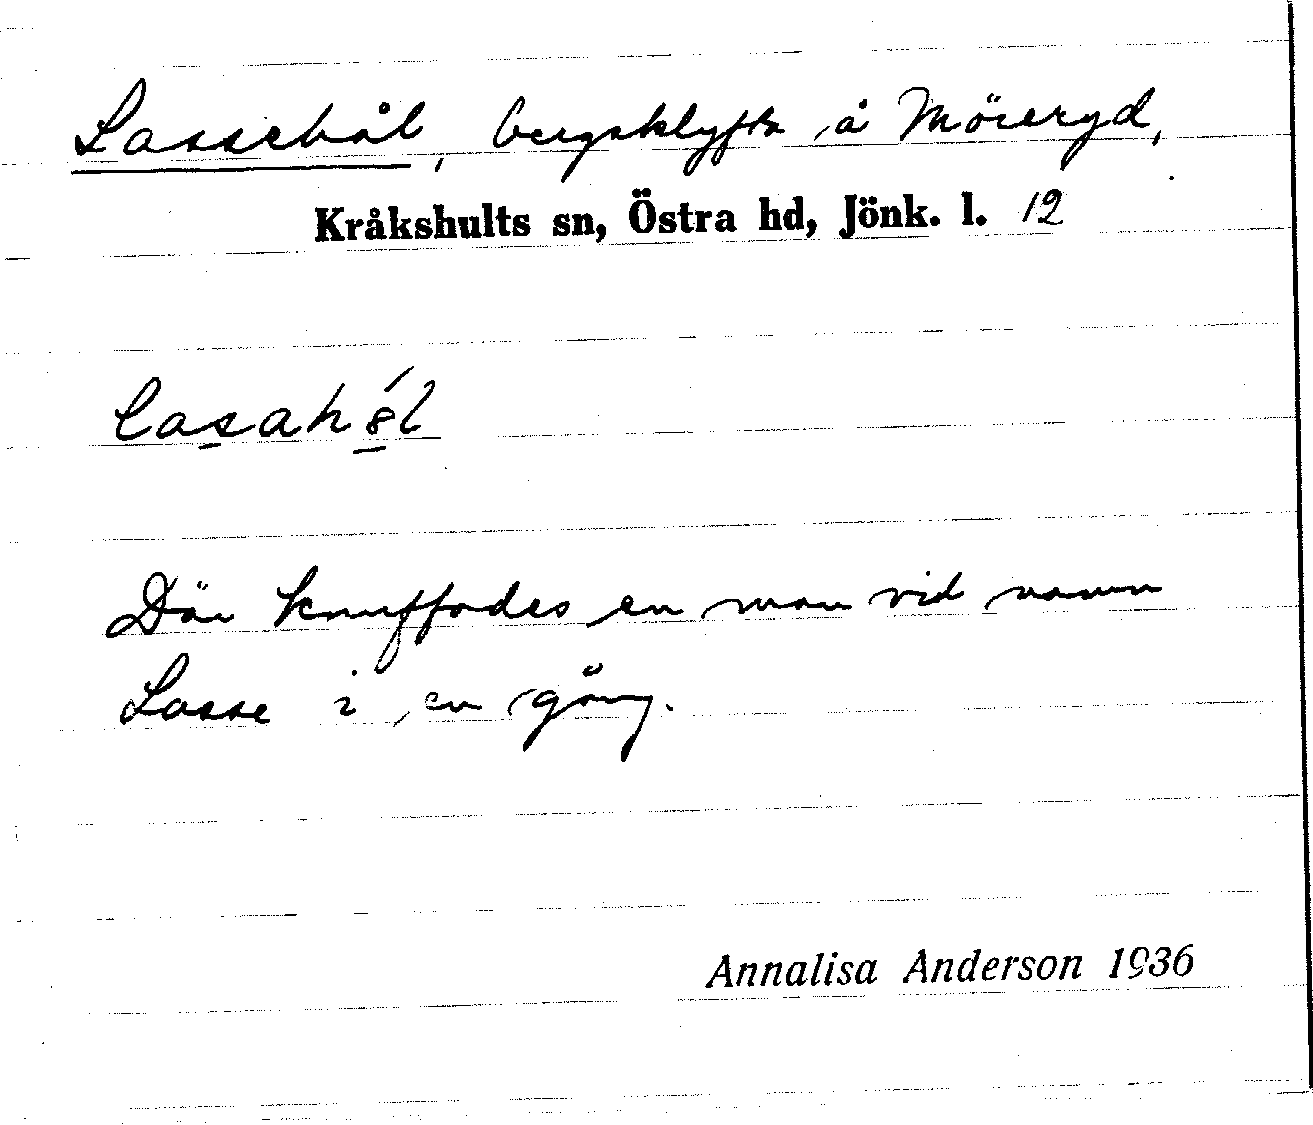 Lassehål, bergsklyfta å Möseryd,
Kråkshults sn, Östra hd, Jönk. l. 12
lasah8́l
Där knuffades en man vid namn
Lasse i en gång.
Annalisa Anderson 1936